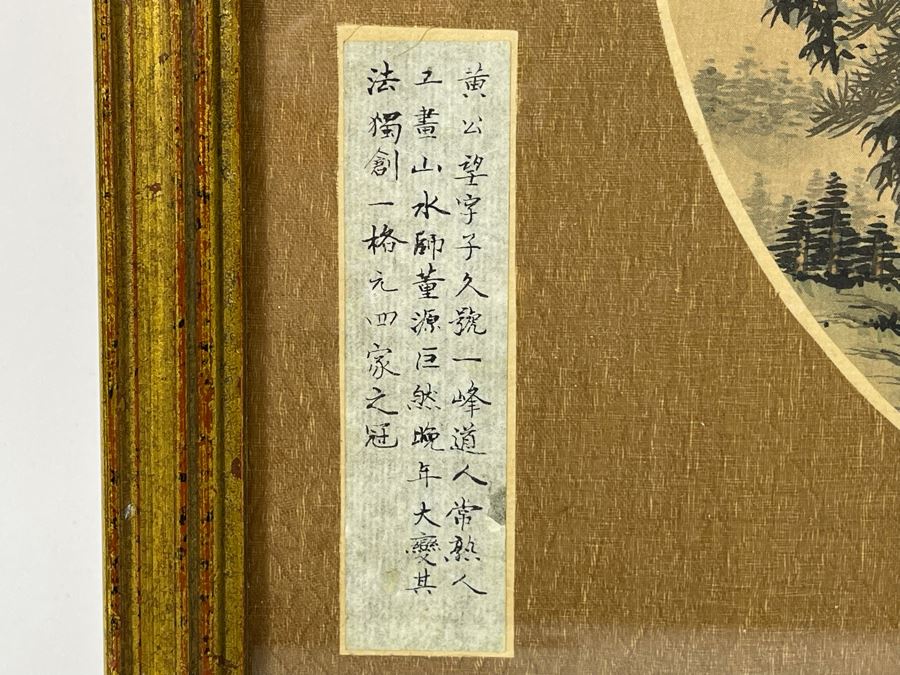 黃公望字子久號一峰道人常熟人
工畫山水師董源巨然晚年大變其
法獨創一格元四家之冠